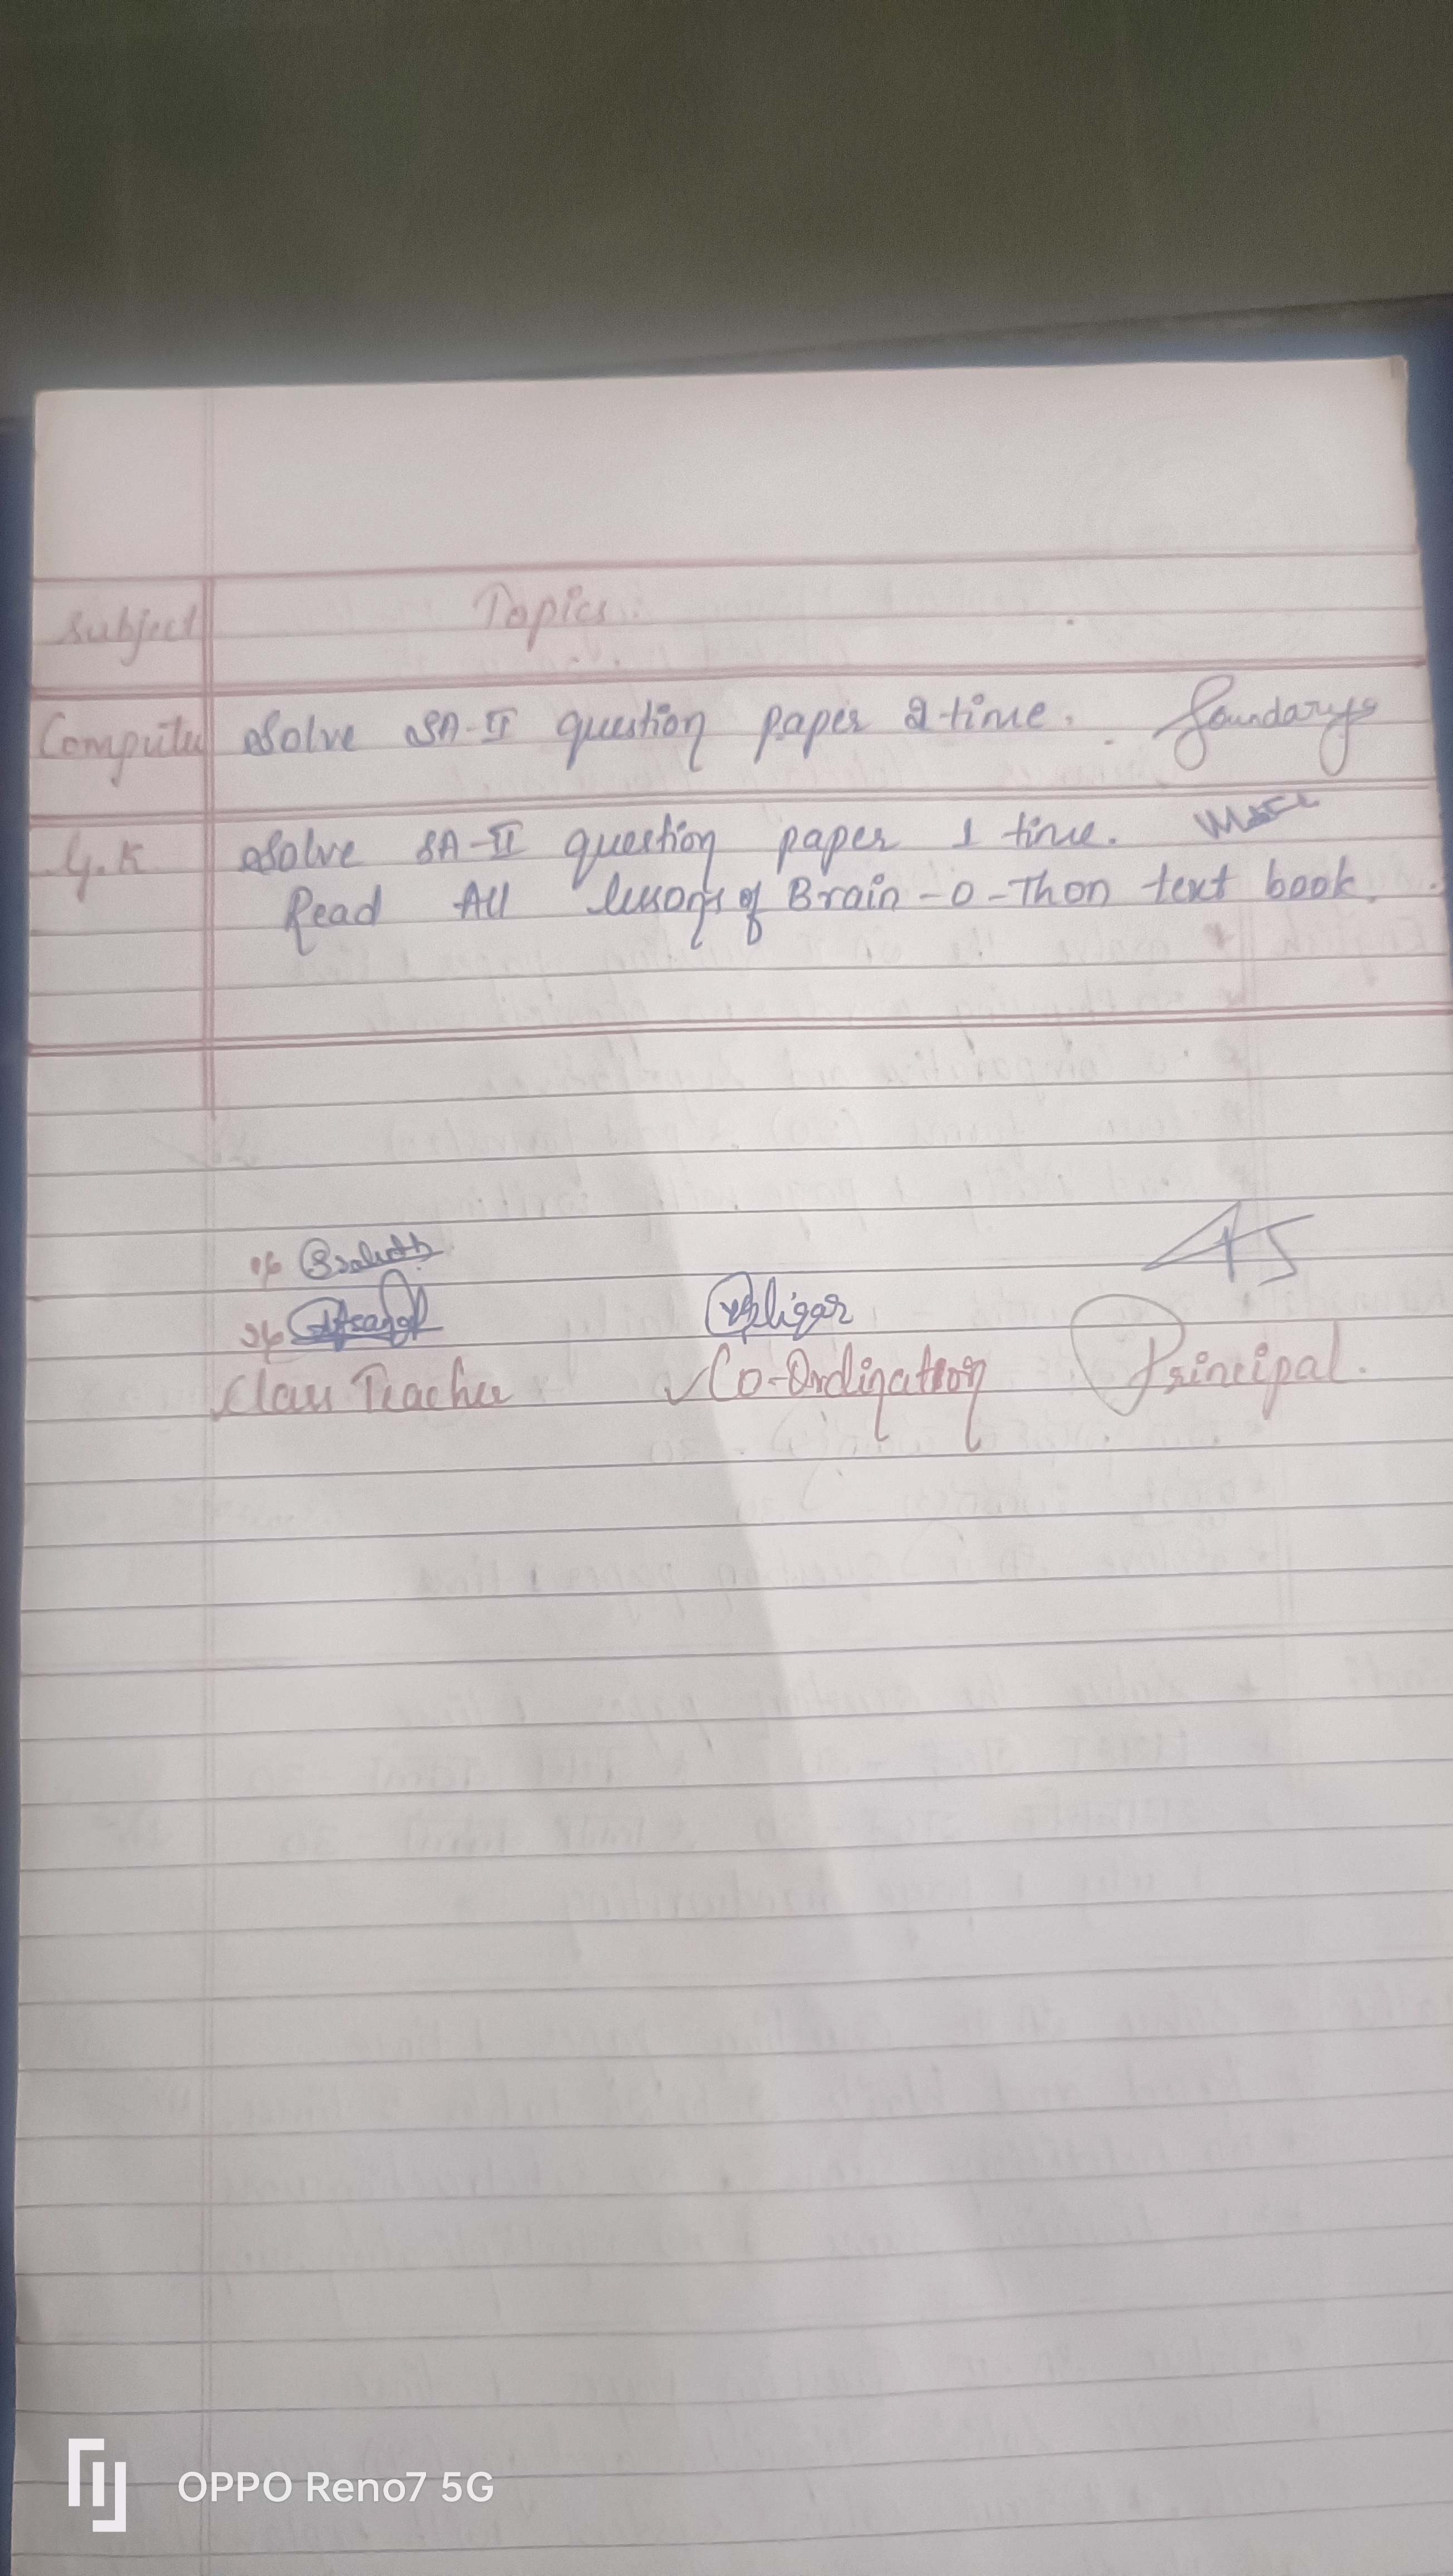 Subject Topics.
Computer Solve SA-II question paper 2 time.
G.K Solve SA-II question paper 1 time.
Read All lessons of Brain-O-Thon text book.
Class Teacher Co-Ordination Principal.
OPPO Reno7 5G